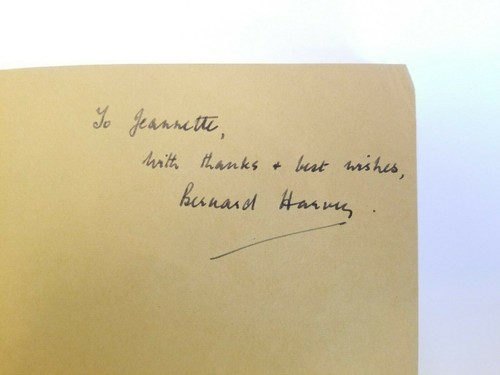 To Jeannette,
With thanks + best wishes,
Bernard Harvey.